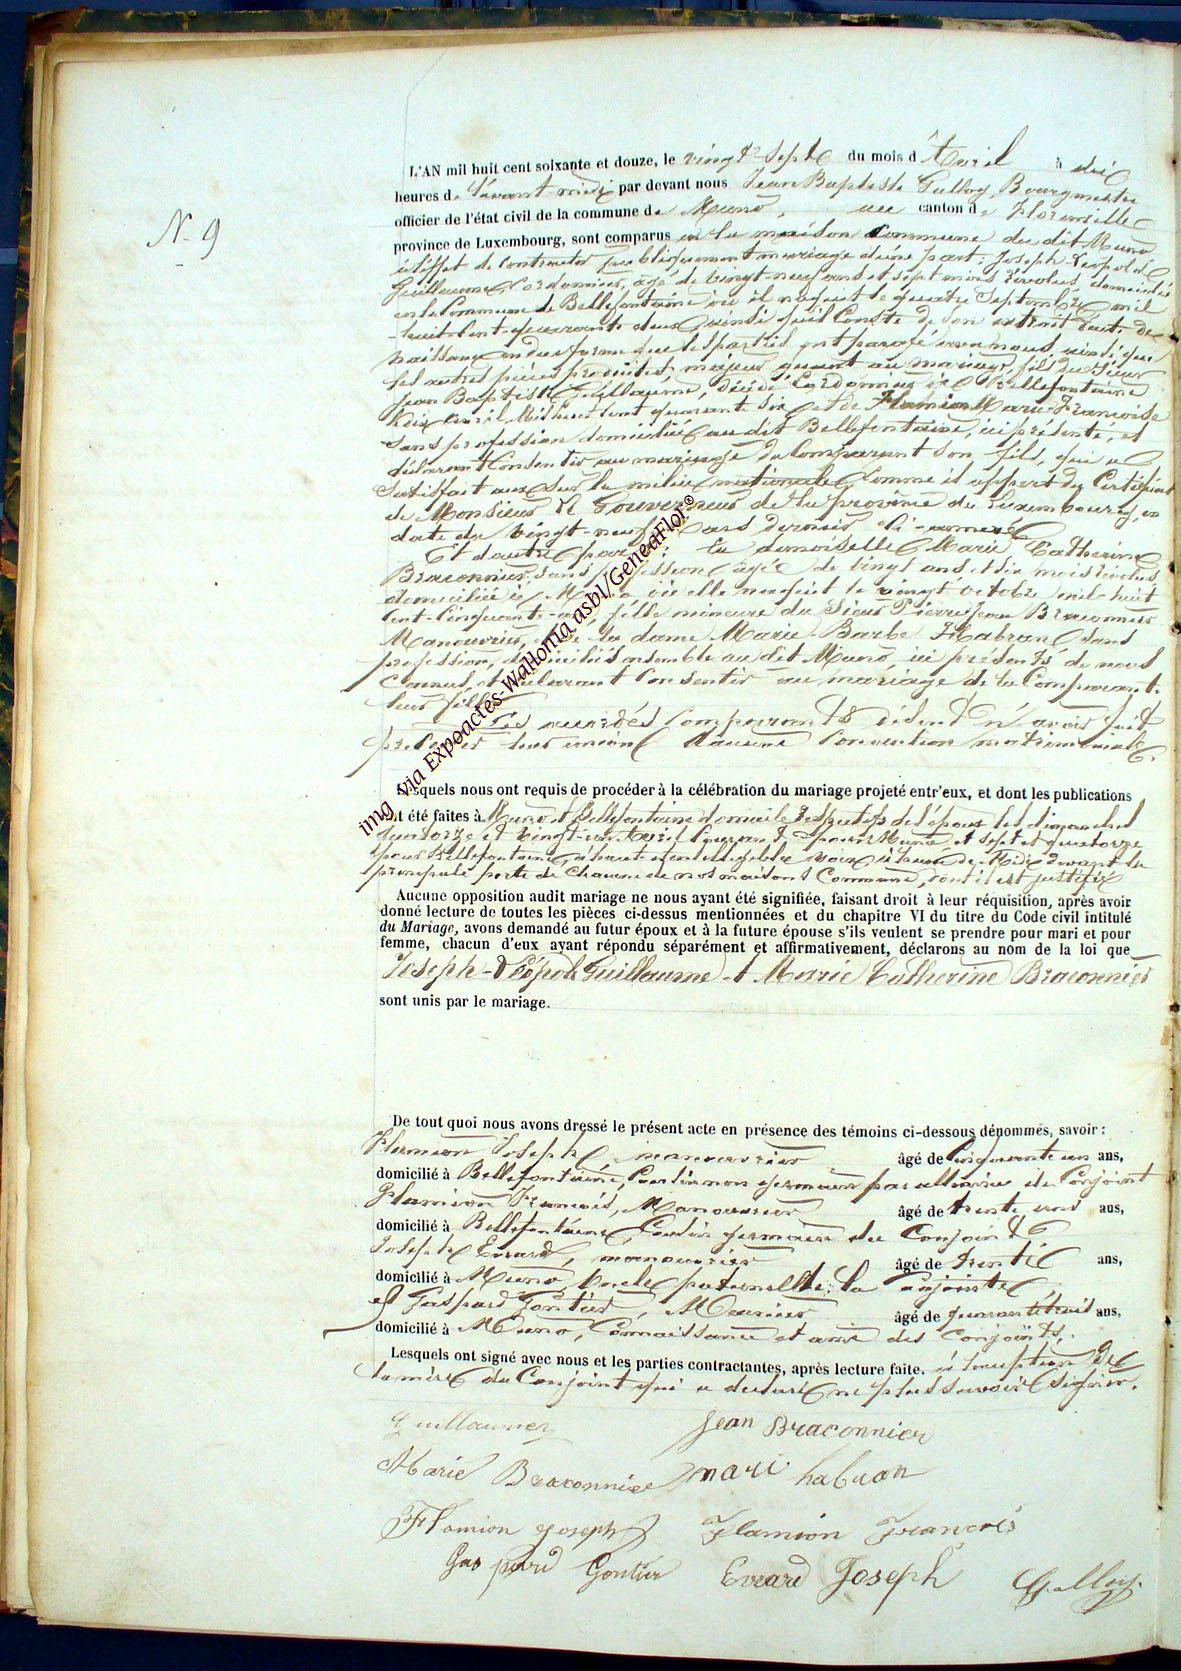 N. 9
L'AN mil huit cent soixante et douze, le vingt-sept du mois d'Avril à dix
heures de l'avant-midi par devant nous Jean Baptiste Galloy, Bourgmestre
officier de l'état civil de la commune de Muno, canton de Florenville
province de Luxembourg, sont comparus en la maison Commune du dit Muno
à l'effet de contracter publiquement mariage d'une part: Joseph-Léopold
Guillaume, Cordonnier, âgé de vingt-neuf ans et sept mois révolus, domicilié
en la Commune de Bellefontaine où il naquit le quatre Septembre mil
huit-Cent-quarante deux ainsi qu'il Conste de son extrait d'acte de
naissance en due forme que les parties ont parafé avec nous, ainsi que
les autres pièces produites, majeur quant au mariage, fils du Sieur
Jean Baptiste Guillaume, décédé Cordonnier à Bellefontaine
avril Mil huit Cent quarante six et de Flamion Marie-Françoise
sans profession domiciliée au dit Bellefontaine, ici présente, et
déclarant Consentir au mariage du Comparant son fils, qui a
satisfait aux sur la milice nationale, Comme il appert du Certificat
de Monsieur le Gouverneur de la province de Luxembourg, en
date du Vingt-neuf Mars dernier, Ci-annexé
Et d'autre part: la demoiselle Marie Catherine
Braconnier, sans profession âgée de vingt ans et six mois révolus
domiciliée à Muno où elle naquit le vingt octobre mil-huit
Cent-Cinquante-un, fille mineure du Sieur Pierre Jean Braconnier
Manouvrier, et de la dame Marie-Barbe Habran sans
profession, domiciliés ensemble au dit Muno, ici présents, de nous
Connus, et déclarant Consentir au mariage de la Comparante
leur fille.
Les susdits Comparants disent n'avoir fait
précéder leur union d'aucune Convention matrimoniale.
Lesquels nous ont requis de procéder à la célébration du mariage projeté entr'eux, et dont les publications
ont été faites à Muno et Bellefontaine domicile respectifs de l'époux les dimanches
quatorze et vingt-un Avril Courant pour Muno, et sept et quatorze
pour Bellefontaine, à haute et intelligible voix, à heure de Midi devant la
principale porte de Chacune de nos maisons Commune, Comme il est justifié
Aucune opposition audit mariage ne nous ayant été signifiée, faisant droit à leur réquisition, après avoir
donné lecture de toutes les pièces ci-dessus mentionnées et du chapitre VI du titre du Code civil intitulé
du Mariage, avons demandé au futur époux et à la future épouse s'ils veulent se prendre pour mari et pour
femme, chacun d'eux ayant répondu séparément et affirmativement, déclarons au nom de la loi que
Joseph-Léopold Guillaume et Marie Catherine Braconnier
sont unis par le mariage.
De tout quoi nous avons dressé le présent acte en présence des témoins ci-dessous dénommés, savoir:
Flamion Joseph, manouvrier âgé de Cinquante un ans,
domicilié à Bellefontaine, Cousin non germain par alliance du Conjoint
Flamion François, Manouvrier âgé de trente ans,
domicilié à Bellefontaine, Cousin germain du Conjoint
Joseph Evrard, manouvrier âgé de trente ans,
domicilié à Muno, Oncle paternelle de la Conjointe
et Gaspard Gontier, Meunier âgé de quarante huit ans,
domicilié à Muno, Connaissance et ami des Conjoints.
Lesquels ont signé avec nous et les parties contractantes, après lecture faite. à l'exception de
la mère du Conjoint qui a déclaré ne plus savoir signer.
Guillaume
Jean Braconnier
Marie Braconnier
mari habran
Flamion Joseph
Flamion François
Gaspard Gontier
Evrard Joseph
Galloy
img via Expoactes-Wallonia asbl/GeneaFlor®